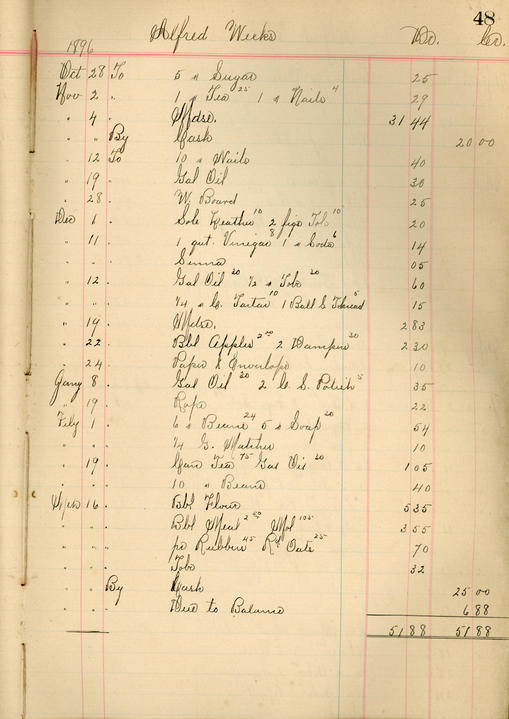 48
Alfred Weeks Dr. Cr.
1896
Oct 28 To 5 " Sugar 25
Nov 2 " 1 " Tea 25 1 " Nails 4 29
" 4 " Mdse. 31 44
" " By Cash 20 00
" 12 To 10 " Nails 40
" 19 " Gal Oil 30
" 28 " W. Board 25
Dec 1 " Sole Leather 10 2 figs Tob 10 20
" 11 " 1 qut. Vinegar 8 1 " Soda 6 14
" " " Senna 05
" 12 " Gal Oil 20 1/2 " Tobc 20 60
" " " 1/4 " C. Tartar 10 1 Ball S Thread 5 15
" 19 " Mdse. 2 83
" 22 " Bbl Apples 2 00 2 Dampers 30 2 30
" 24 " Paper & Envelope 10
Jany 8 " Gal Oil 20 2 C. S. Polish 5 35
" 19 " Rope 22
Feby 1 " 6 " Beans 24 5 " Soap 20 54
" " " 1/4 G. Matches 10
" 19 " Can Tea 75 Gal Oil 20 1 05
" " " 10 " Beans 40
Mch 16 " Bbl Flour 5 35
" " " Bbl Meal 2 50 Mol 105 3 55
" " " pr Rubbers 45 Rd Oats 25 70
" " " Tobc 32
" " By Cash 25 00
" " " Due to Balance 6 88
51 88 51 88